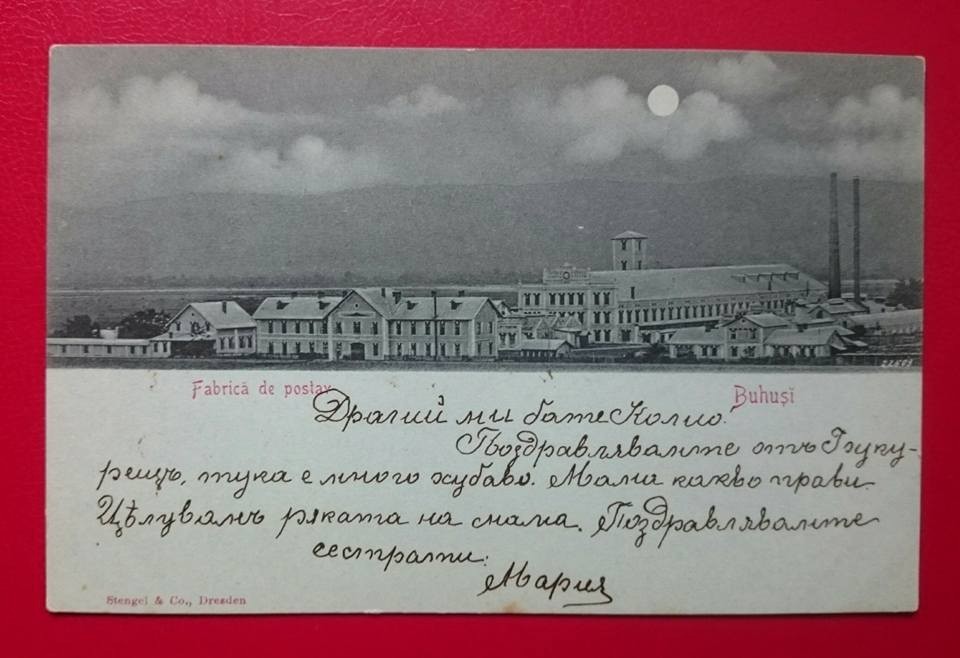 Fabrică de postav
Buhuşĭ
Драгий ми бате Колю.
Поздравлявамте отъ Буку-
рещъ, тука е много хубаво. Мама какво прави.
Цѣлувамъ рѫката на мама. Поздравлявамте
сестрати:
Мария
Stengel & Co., Dresden